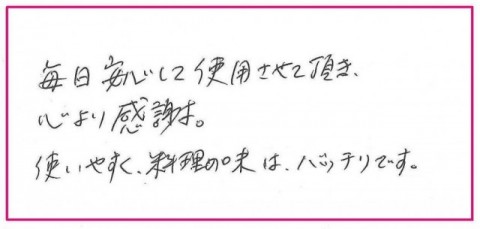 毎日安心して使用させて頂き、
心より感謝す。
使いやすく、料理の味は、バッチリです。